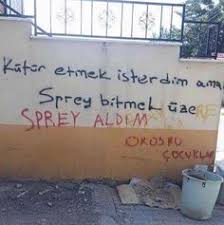 Küfür etmek isterdim ama
Sprey bitmek üzere
SPREY ALDIM
OROSPU
ÇOCUKLAR